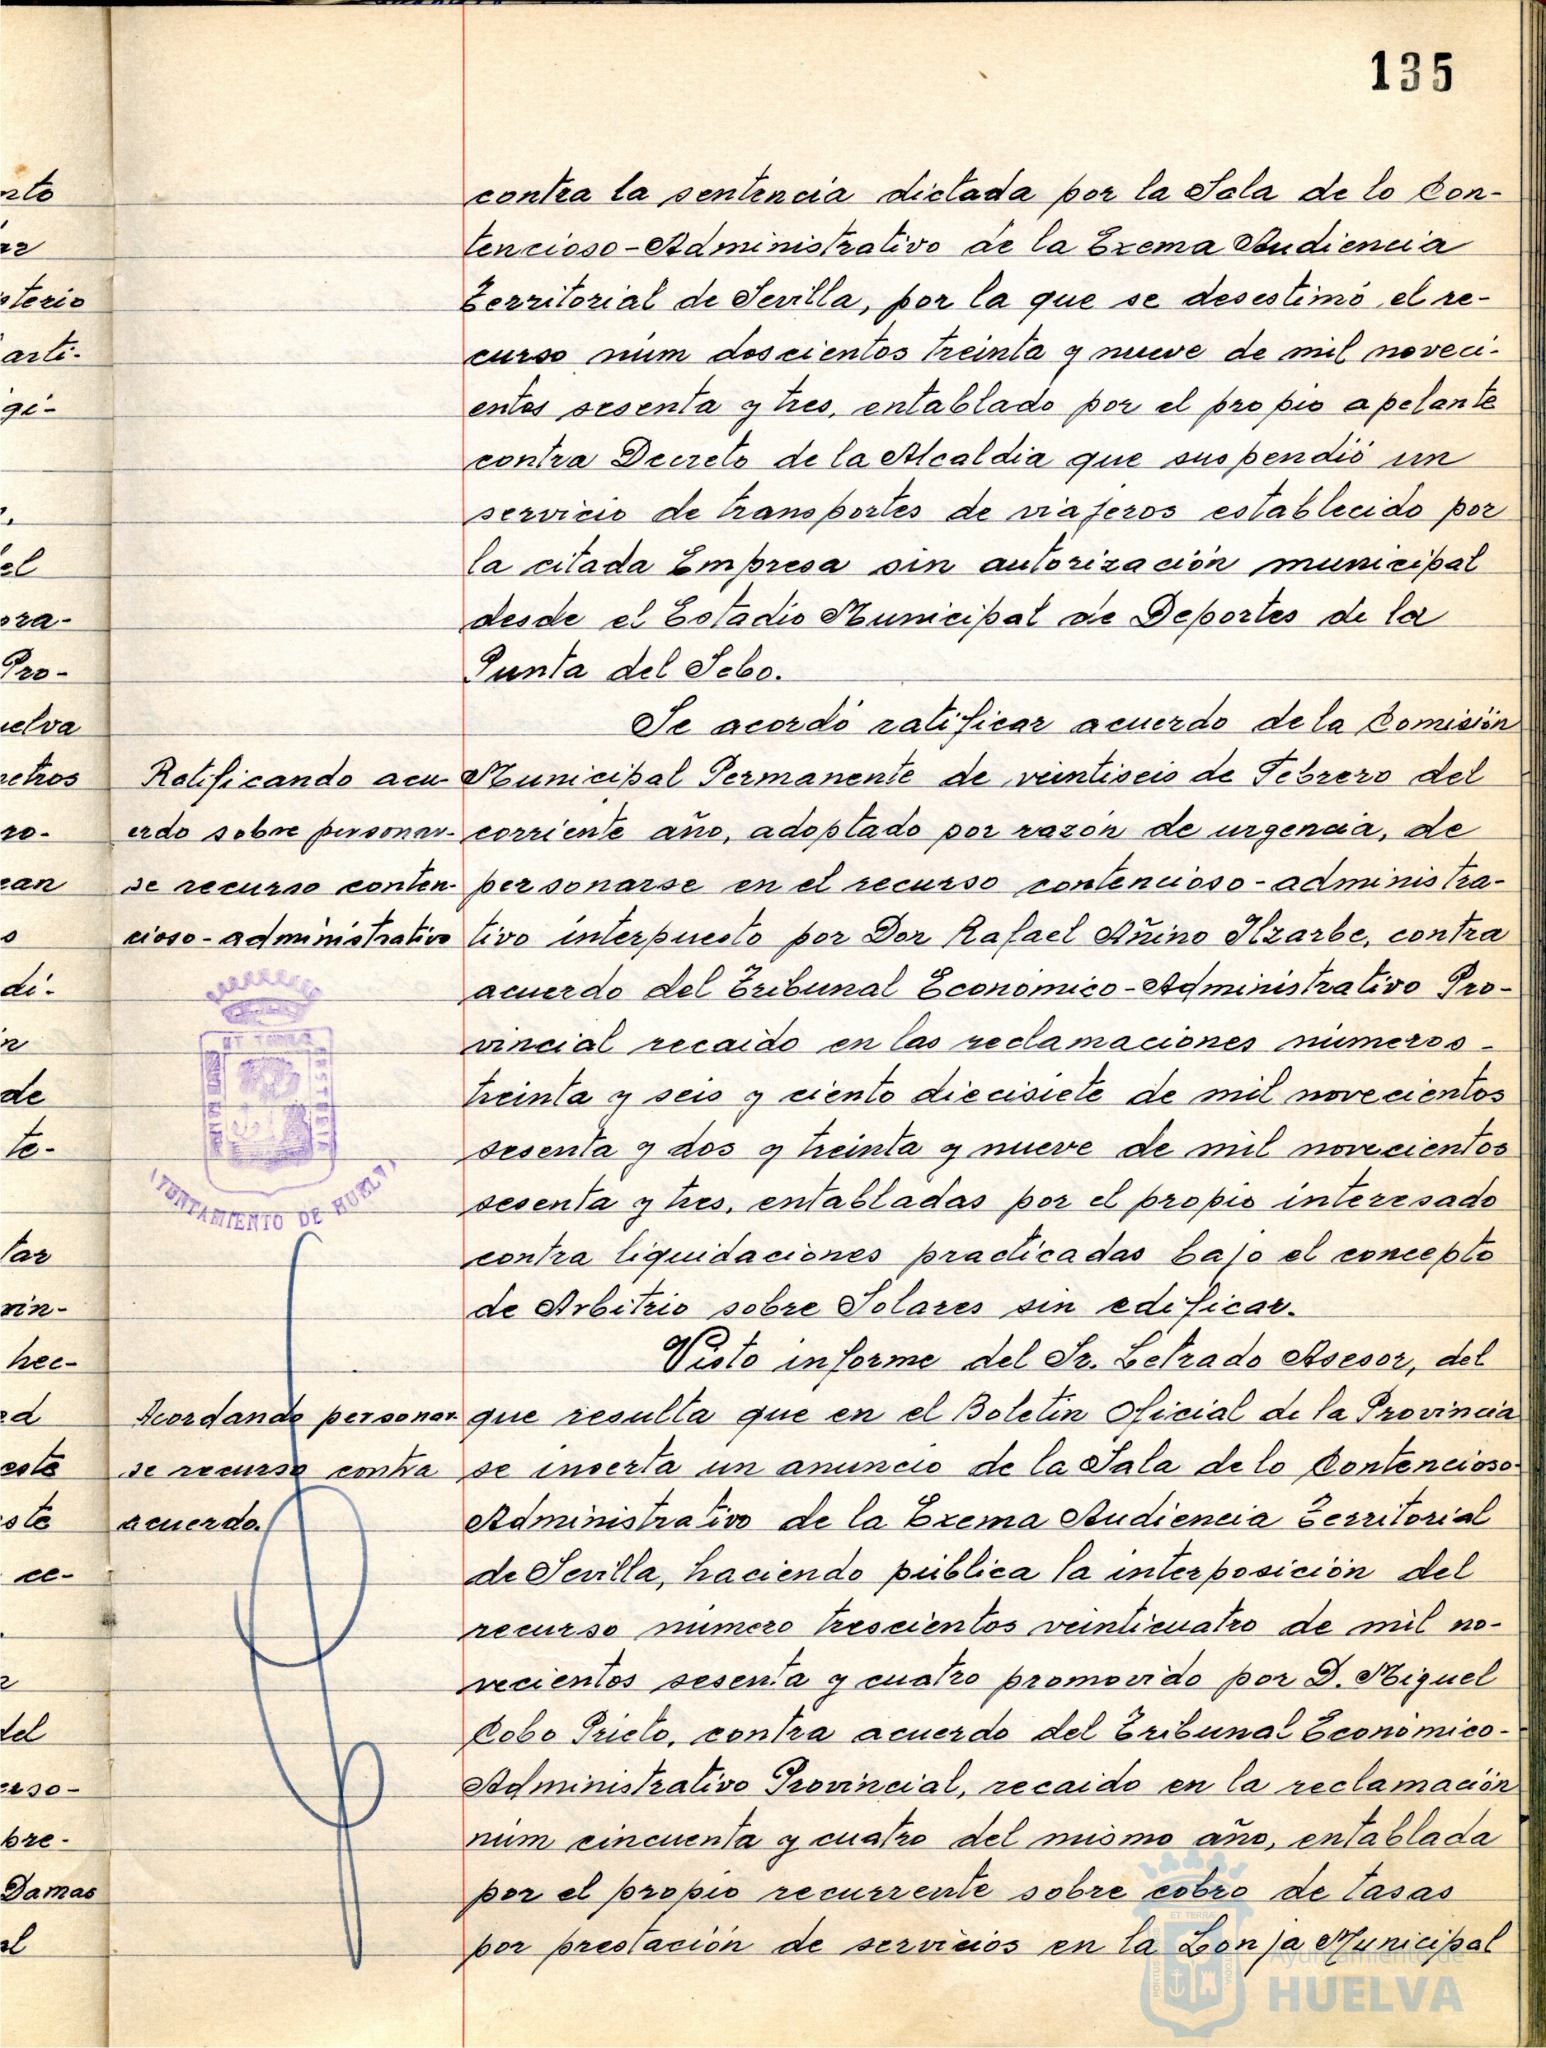 135
contra la sentencia dictada por la Sala de lo Con-
tencioso-Administrativo de la Excma Audiencia
Territorial de Sevilla, por la que se desestimó el re-
curso núm doscientos treinta y nueve de mil noveci-
entos sesenta y tres, entablado por el propio apelante
contra Decreto de la Alcaldia que suspendió un
servicio de transportes de viajeros establecido por
la citada Empresa sin autorización municipal
desde el Estadio Municipal de Deportes de la
Punta del Sebo.
Se acordó ratificar acuerdo de la Comisión
Municipal Permanente de veintiseis de Febrero del
corriente año, adoptado por razón de urgencia, de
personarse en el recurso contencioso-administra-
tivo interpuesto por Don Rafael Añino Ilzarbe, contra
acuerdo del Tribunal Económico-Administrativo Pro-
vincial recaido en las reclamaciones números-
treinta y seis y ciento diecisiete de mil novecientos
sesenta y dos y treinta y nueve de mil novecientos
sesenta y tres, entabladas por el propio interesado
contra liquidaciones practicadas bajo el concepto
de Arbitrio sobre Solares sin edificar.
Visto informe del Sr. Letrado Asesor, del
que resulta que en el Boletín Oficial de la Provincia
se inserta un anuncio de la Sala de lo Contencioso-
Administrativo de la Excma Audiencia Territorial
de Sevilla, haciendo pública la interposición del
recurso número trescientos veinticuatro de mil no-
vecientos sesenta y cuatro promovido por D. Miguel
Cobo Prieto, contra acuerdo del Tribunal Económico-
Administrativo Provincial, recaido en la reclamación
núm cincuenta y cuatro del mismo año, entablada
por el propio recurrente sobre cobro de tasas
por prestación de servicios en la Lonja Municipal
Ratificando acu-
erdo sobre personar-
se recurso conten-
cioso-administrativo
AYUNTAMIENTO DE HUELVA
Acordando personar
se recurso contra
acuerdo.
nto
ar
sterio
arti-
gi-
el
ora-
Pro-
uelva
netros
ro-
ean
o
di-
n
de
te-
tar
vin-
hec-
ed
este
ste
ce-
del
erso-
bre-
Damas
al
Ayuntamiento de
HUELVA